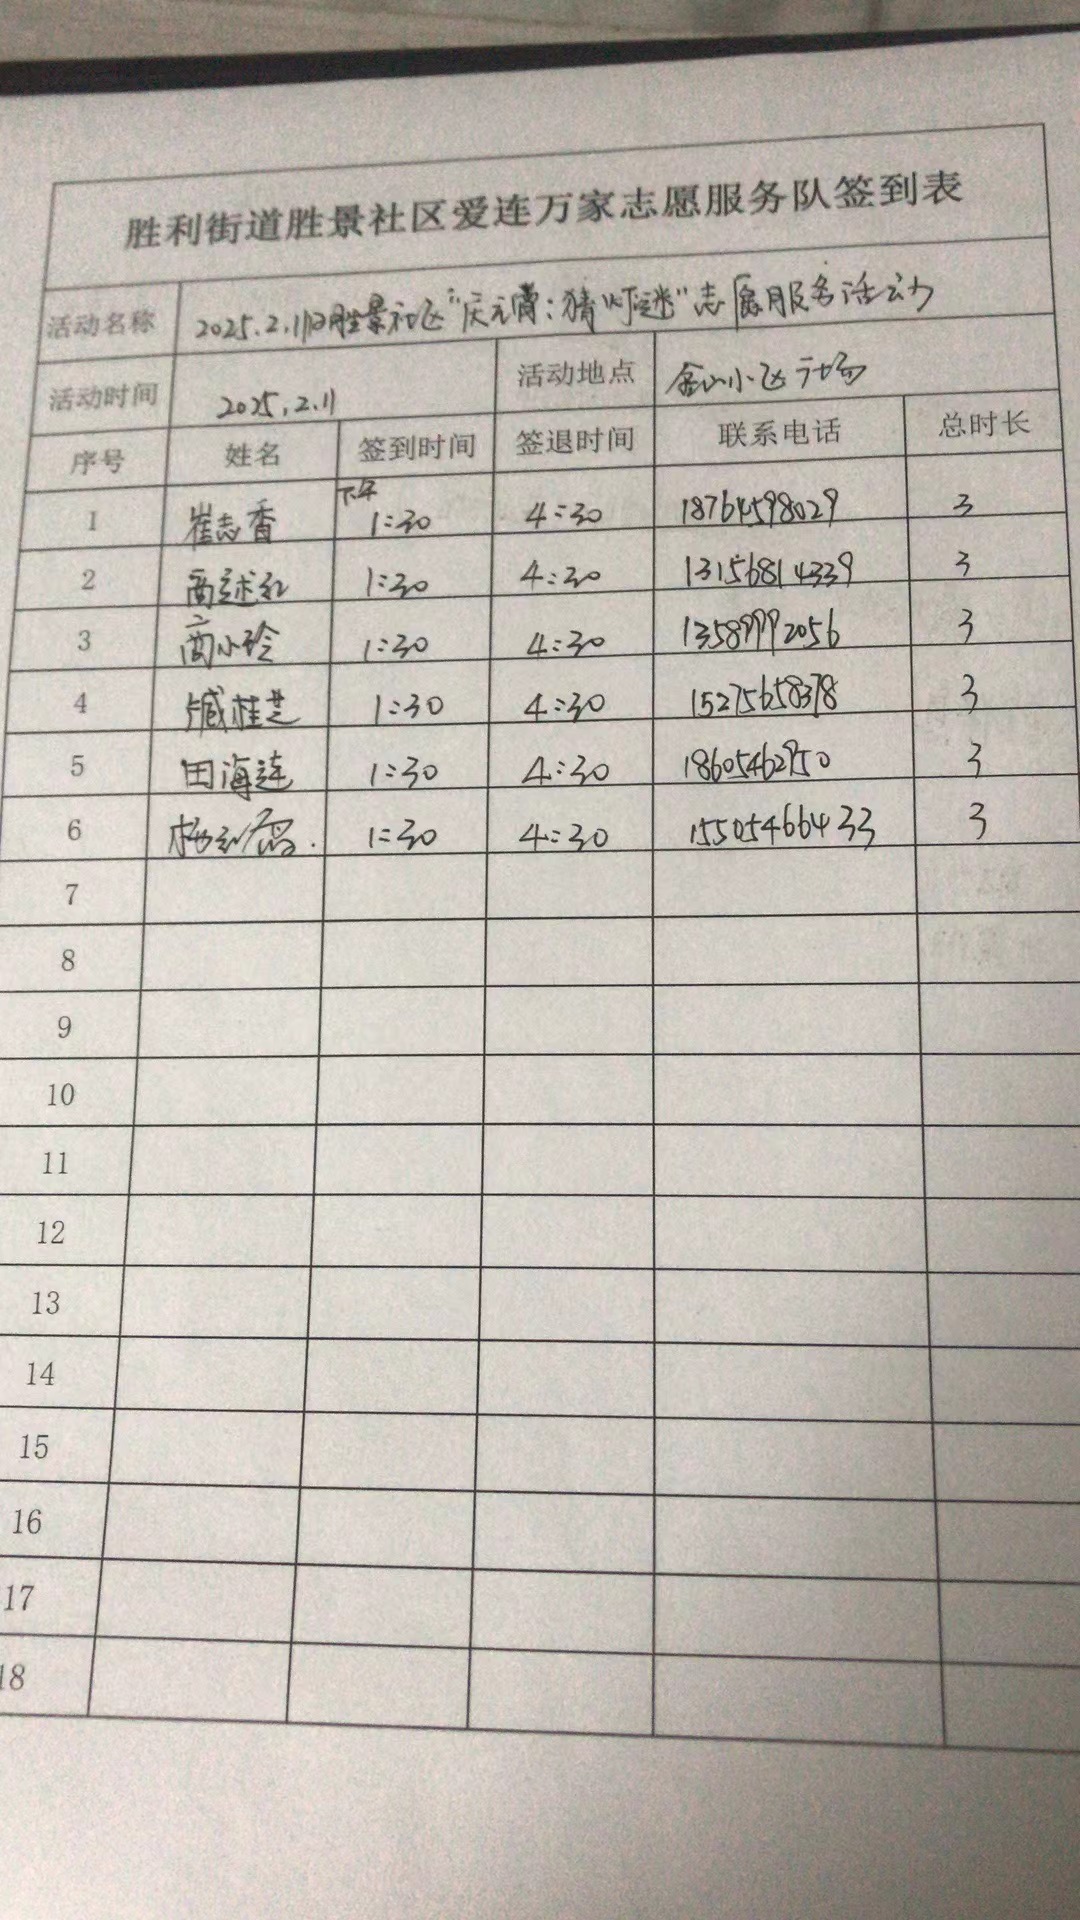 胜利街道胜景社区爱连万家志愿服务队签到表
活动名称 2025.2.11日胜景社区“庆元宵:猜灯谜”志愿服务活动
活动时间 2025.2.11 活动地点 金山小区广场
序号 姓名 签到时间 签退时间 联系电话 总时长
1 崔志香 下午1:30 4:30 18764598029 3
2 商述红 1:30 4:30 13156814339 3
3 商小玲 1:30 4:30 13589992056 3
4 臧桂芝 1:30 4:30 15275658378 3
5 田海莲 1:30 4:30 18605462950 3
6 杨 1:30 4:30 15505466433 3
7
8
9
10
11
12
13
14
15
16
17
18